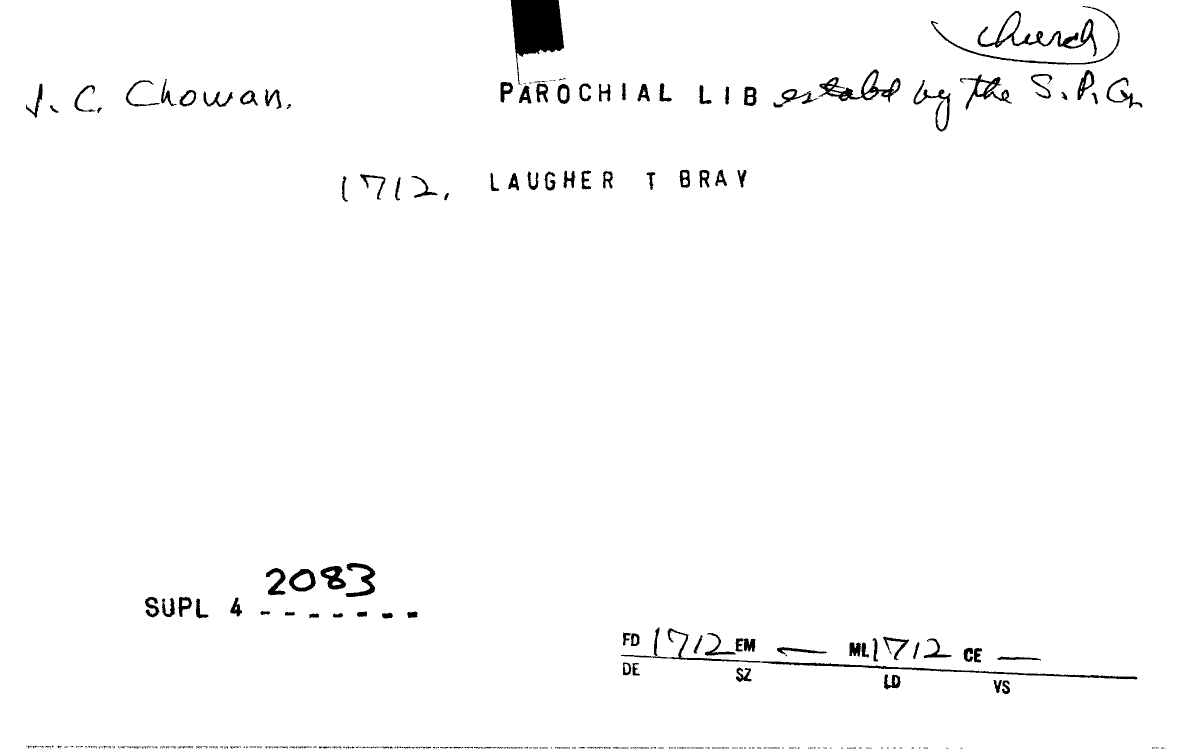 church
J. C. Chowan. PAROCHIAL LIB establd by the S. P. G.
1712. LAUGHER T BRAY
2083
SUPL 4 - - - - - - -
FD 1712 EM — ML 1712 CE —
DE SZ LD VS